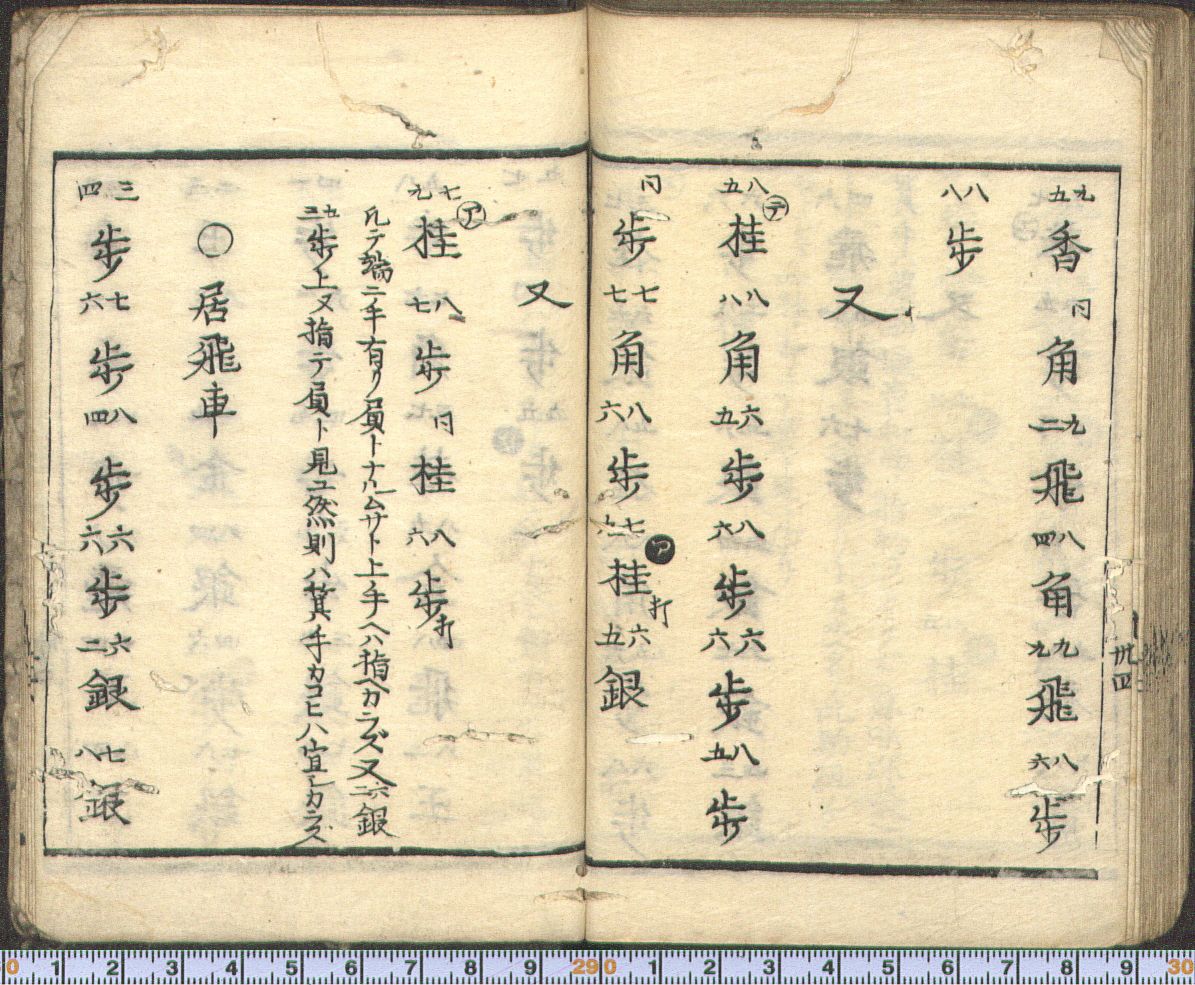 九五香 同角 九二飛 八四角 九九飛 八六歩
八八歩
又
八五桂㋢ 八八角 六五歩 八六歩 六六歩 八五歩
同歩 七七角 八六歩 七六桂ア打 六五銀
又
七九桂㋐ 八七歩 同桂 八六歩打
凡テ端ニ手有リ員トナルムサト上手ヘハ指ヘカラズ又六二銀
五三歩上又指テ員ト見ユ然則ハ箕手カコヒハ宜シカラズ
○居飛車
三四歩 七六歩 八四歩 六六歩 六二銀 七八銀
卅四